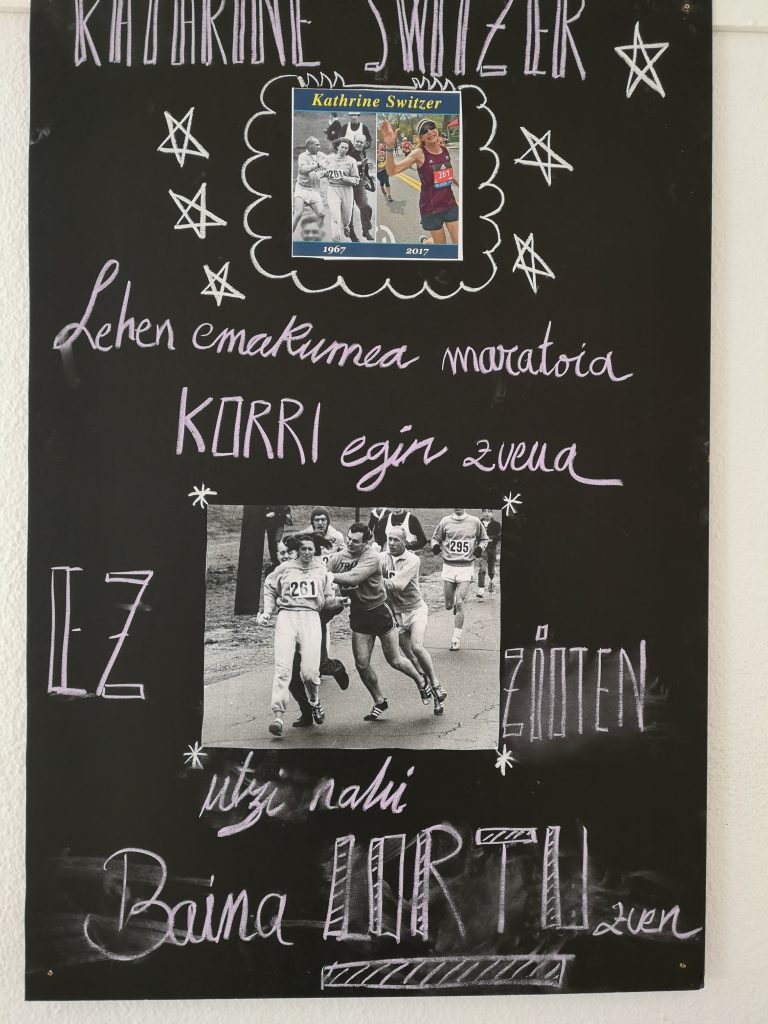 KATHRINE SWITZER
Kathrine Switzer
261
261
1967 2017
Lehen emakumea maratoia
KORRI egin zuena
261
295
EZ ZIOTEN
utzi nahi
Baina LORTU zuen